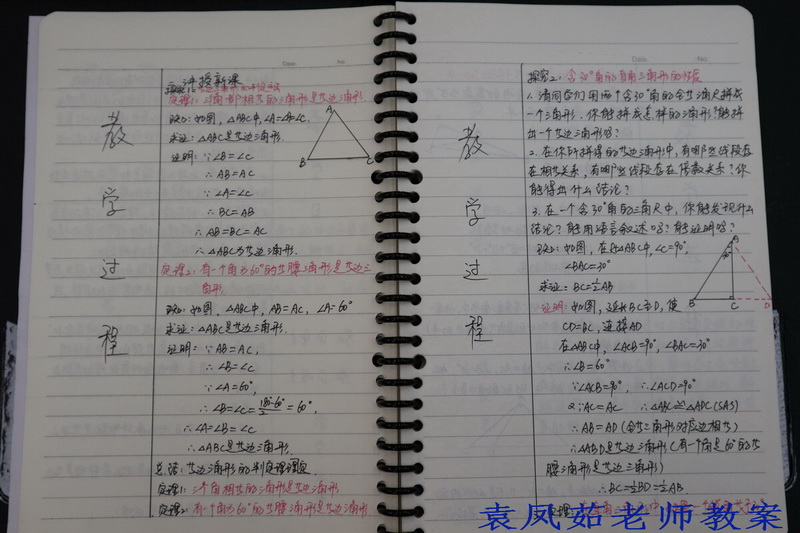 教学过程
二、讲授新课
定理1: 三个角都相等的三角形是等边三角形.
已知: 如图, △ABC中, ∠A=∠B=∠C.
求证: △ABC是等边三角形.
证明: ∵∠B=∠C
∴AB=AC
∵∠A=∠C
∴BC=AB
∴AB=BC=AC
∴△ABC为等边三角形.
A
B
C
定理2: 有一个角为60°的等腰三角形是等边三
角形.
已知: 如图, △ABC中, AB=AC, ∠A=60°
求证: △ABC是等边三角形.
证明: ∵AB=AC,
∴∠B=∠C
∵∠A=60°,
∴∠B=∠C=(180°-60°)/2=60°,
∴∠A=∠B=∠C
∴△ABC是等边三角形.
总结: 等边三角形的判定定理
定理1: 三个角相等的三角形是等边三角形
定理2: 有一个角为60°的等腰三角形是等边三角形
Date.
No.
教学过程
探究2: 含30°角的直角三角形的性质
1. 请同学们用两个含30°角的全等三角尺拼成
一个三角形. 你能拼成怎样的三角形?能拼
出一个等边三角形吗?
2. 在你所拼得的等边三角形中, 有哪些线段存
在相等关系, 有哪些线段存在倍数关系? 你
能得出什么结论?
3. 在一个含30°角的三角尺中, 你能发现什么
结论? 能用语言叙述吗? 能证明吗?
已知: 如图, 在Rt△ABC中, ∠C=90°,
∠BAC=30°
求证: BC=½AB
证明: 如图, 延长BC至D, 使
CD=BC, 连接AD
在△ABC中, ∠ACB=90°, ∠BAC=30°
∴∠B=60°
∵∠ACB=90° ∴∠ACD=90°
又∵AC=AC ∴△ABC≌△ADC(SAS)
∴AB=AD(全等三角形对应边相等)
∴△ABD是等边三角形(有一个角是60°的等
腰三角形是等边三角形)
∴BC=½BD=½AB
A
B
C
D
Date.
No.
袁凤茹老师教案